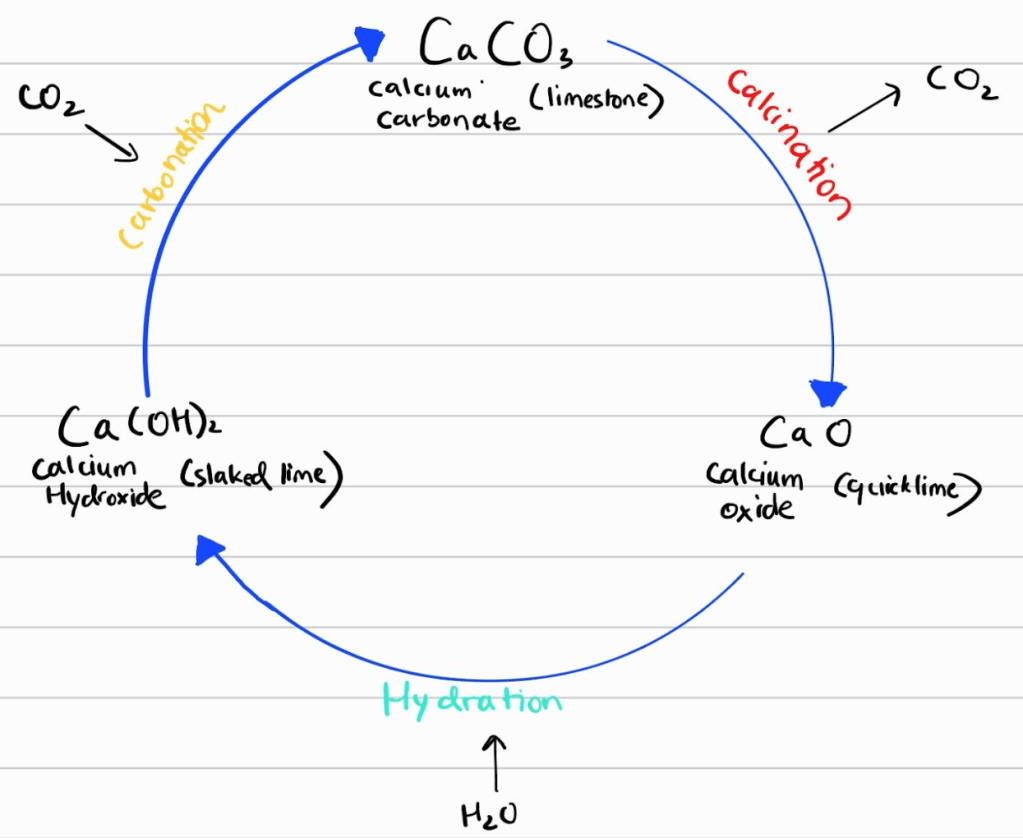 CaCO₃
calcium carbonate (limestone)
Calcination
CO₂
CaO
Calcium oxide (quicklime)
Hydration
H₂O
Ca(OH)₂
Calcium Hydroxide (slaked lime)
Carbonation
CO₂